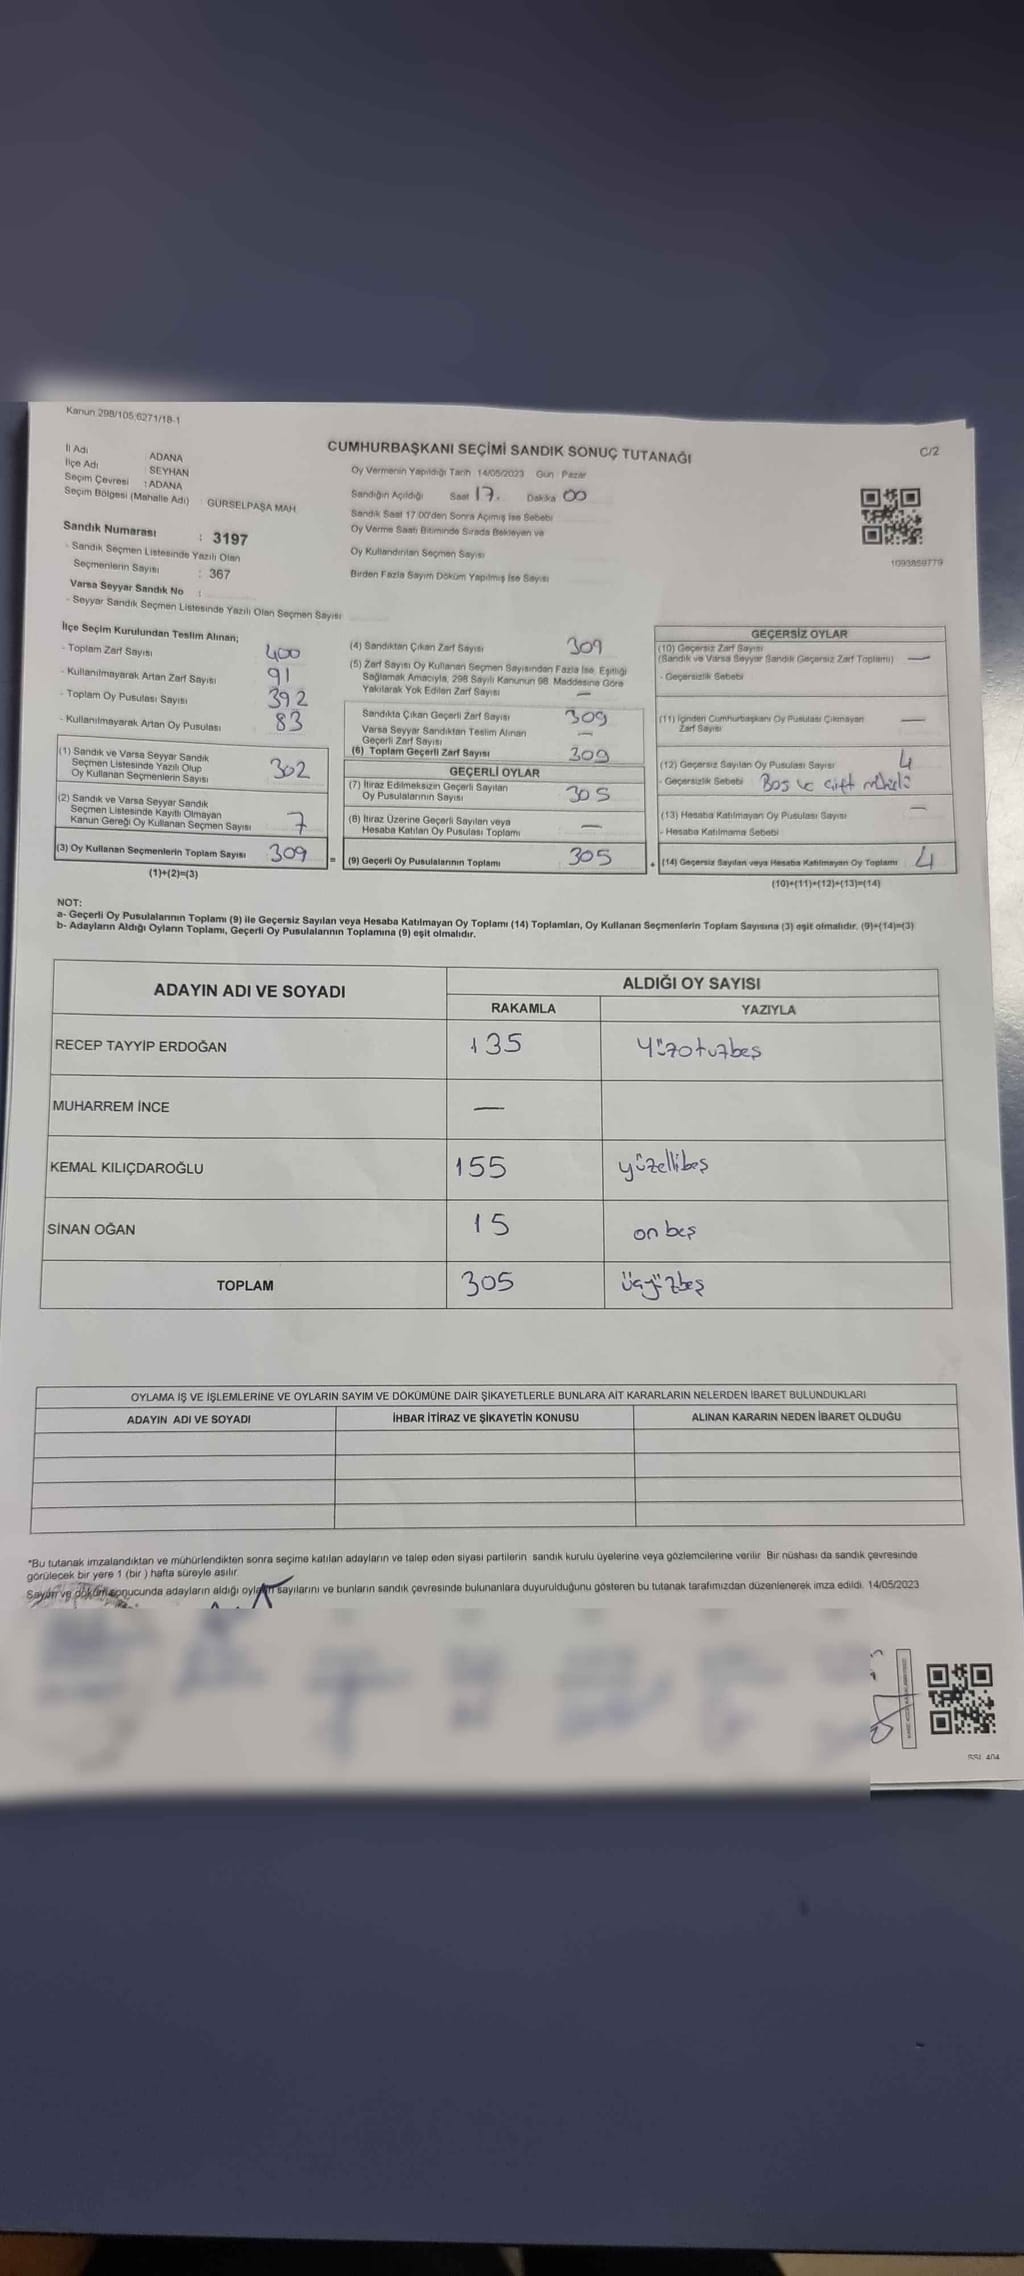 Kanun 298/105,6271/18-1
C/2
CUMHURBAŞKANI SEÇİMİ SANDIK SONUÇ TUTANAĞI
İl Adı : ADANA
İlçe Adı : SEYHAN
Seçim Çevresi : ADANA
Seçim Bölgesi (Mahalle Adı) : GÜRSELPAŞA MAH.
Oy Vermenin Yapıldığı Tarih 14/05/2023 Gün : Pazar
Sandığın Açıldığı Saat 17. Dakika 00
Sandık Saat 17:00'den Sonra Açımış İse Sebebi
Oy Verme Saati Bitiminde Sırada Bekleyen ve
Oy Kullandırılan Seçmen Sayısı
Birden Fazla Sayım Döküm Yapılmış İse Sayısı
1093859779
Sandık Numarası : 3197
- Sandık Seçmen Listesinde Yazılı Olan
Seçmenlerin Sayısı : 367
Varsa Seyyar Sandık No :
- Seyyar Sandık Seçmen Listesinde Yazılı Olan Seçmen Sayısı
İlçe Seçim Kurulundan Teslim Alınan;
- Toplam Zarf Sayısı 400
- Kullanılmayarak Artan Zarf Sayısı 91
- Toplam Oy Pusulası Sayısı 392
- Kullanılmayarak Artan Oy Pusulası 83
(1) Sandık ve Varsa Seyyar Sandık
Seçmen Listesinde Yazılı Olup
Oy Kullanan Seçmenlerin Sayısı 302
(2) Sandık ve Varsa Seyyar Sandık
Seçmen Listesinde Kayıtlı Olmayan
Kanun Gereği Oy Kullanan Seçmen Sayısı 7
(3) Oy Kullanan Seçmenlerin Toplam Sayısı 309 =
(1)+(2)=(3)
(4) Sandıktan Çıkan Zarf Sayısı 309
(5) Zarf Sayısı Oy Kullanan Seçmen Sayısından Fazla İse, Eşitliği
Sağlamak Amacıyla, 298 Sayılı Kanunun 98. Maddesine Göre
Yakılarak Yok Edilen Zarf Sayısı —
Sandıkta Çıkan Geçerli Zarf Sayısı 309
Varsa Seyyar Sandıktan Teslim Alınan
Geçerli Zarf Sayısı —
(6) Toplam Geçerli Zarf Sayısı 309
GEÇERLİ OYLAR
(7) İtiraz Edilmeksizin Geçerli Sayılan
Oy Pusulalarının Sayısı 305
(8) İtiraz Üzerine Geçerli Sayılan veya
Hesaba Katılan Oy Pusulası Toplamı —
(9) Geçerli Oy Pusulalarının Toplamı 305 +
GEÇERSİZ OYLAR
(10) Geçersiz Zarf Sayısı
(Sandık ve Varsa Seyyar Sandık Geçersiz Zarf Toplamı) —
- Geçersizlik Sebebi
(11) İçinden Cumhurbaşkanı Oy Pusulası Çıkmayan
Zarf Sayısı —
(12) Geçersiz Sayılan Oy Pusulası Sayısı 4
- Geçersizlik Sebebi Boş ve çift mühürlü
(13) Hesaba Katılmayan Oy Pusulası Sayısı —
- Hesaba Katılmama Sebebi
(14) Geçersiz Sayılan veya Hesaba Katılmayan Oy Toplamı 4
(10)+(11)+(12)+(13)=(14)
NOT:
a- Geçerli Oy Pusulalarının Toplamı (9) ile Geçersiz Sayılan veya Hesaba Katılmayan Oy Toplamı (14) Toplamları, Oy Kullanan Seçmenlerin Toplam Sayısına (3) eşit olmalıdır. (9)+(14)=(3)
b- Adayların Aldığı Oyların Toplamı, Geçerli Oy Pusulalarının Toplamına (9) eşit olmalıdır.
ADAYIN ADI VE SOYADI ALDIĞI OY SAYISI
RAKAMLA YAZIYLA
RECEP TAYYİP ERDOĞAN 135 Yüzotuzbeş
MUHARREM İNCE —
KEMAL KILIÇDAROĞLU 155 yüzellibeş
SİNAN OĞAN 15 on beş
TOPLAM 305 üçyüzbeş
OYLAMA İŞ VE İŞLEMLERİNE VE OYLARIN SAYIM VE DÖKÜMÜNE DAİR ŞİKAYETLERLE BUNLARA AİT KARARLARIN NELERDEN İBARET BULUNDUKLARI
ADAYIN ADI VE SOYADI İHBAR İTİRAZ VE ŞİKAYETİN KONUSU ALINAN KARARIN NEDEN İBARET OLDUĞU
*Bu tutanak imzalandıktan ve mühürlendikten sonra seçime katılan adayların ve talep eden siyasi partilerin sandık kurulu üyelerine veya gözlemcilerine verilir. Bir nüshası da sandık çevresinde
görülecek bir yere 1 (bir ) hafta süreyle asılır.
Sayım ve döküm sonucunda adayların aldığı oyların sayılarını ve bunların sandık çevresinde bulunanlara duyurulduğunu gösteren bu tutanak tarafımızdan düzenlenerek imza edildi. 14/05/2023